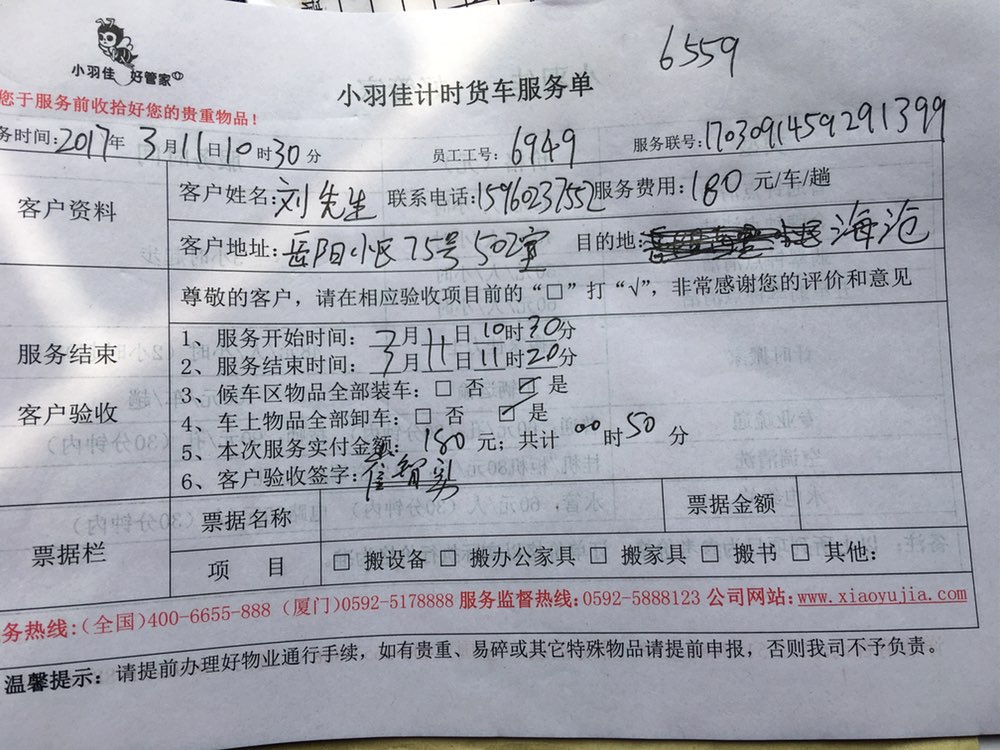 6559
小羽佳 好管家
小羽佳计时货车服务单
您于服务前收拾好您的贵重物品！
务时间:2017年 3月11日10时30分 员工工号:6949 服务联号:1703091459291399
客户资料
客户姓名:刘先生 联系电话:15960237552 服务费用:180元/车/趟
客户地址:岳阳小区75号502室 目的地: 海沧
尊敬的客户，请在相应验收项目前的“□”打“√”，非常感谢您的评价和意见
服务结束
客户验收
1、服务开始时间: 3月11日10时30分
2、服务结束时间: 3月11日11时20分
3、候车区物品全部装车: □ 否 ☑ 是
4、车上物品全部卸车: □ 否 ☑ 是
5、本次服务实付金额: 180 元; 共计 00时50分
6、客户验收签字:
票据栏
票据名称 票据金额
项 目 □ 搬设备 □ 搬办公家具 □ 搬家具 □ 搬书 □ 其他:
务热线:(全国)400-6655-888 (厦门)0592-5178888 服务监督热线:0592-5888123 公司网站:www.xiaoyujia.com
温馨提示: 请提前办理好物业通行手续，如有贵重、易碎或其它特殊物品请提前申报，否则我司不予负责。